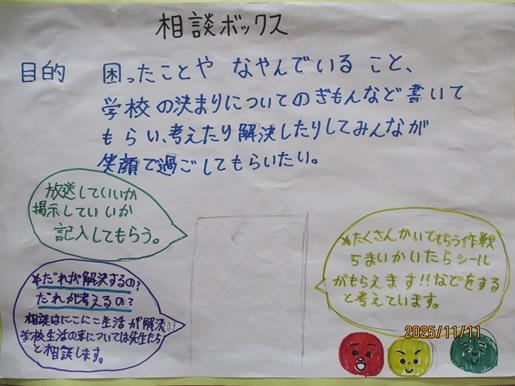 相談ボックス
目的 困ったことや なやんでいる こと、
学校の決まりについてのぎもんなど書いて
もらい、考えたり解決したりしてみんなが
笑顔で過ごしてもらいたい。
放送していいか
掲示していいか
記入してもらう。
※たくさんかいてもらう作戦
5まいかいたらシール
がもらえます!!などをする
と考えています。
※だれが解決するの?
だれが考えるの?
相談はにこにこ生活が解決
学校生活の事については先生たち
と相談します。
2025/11/11